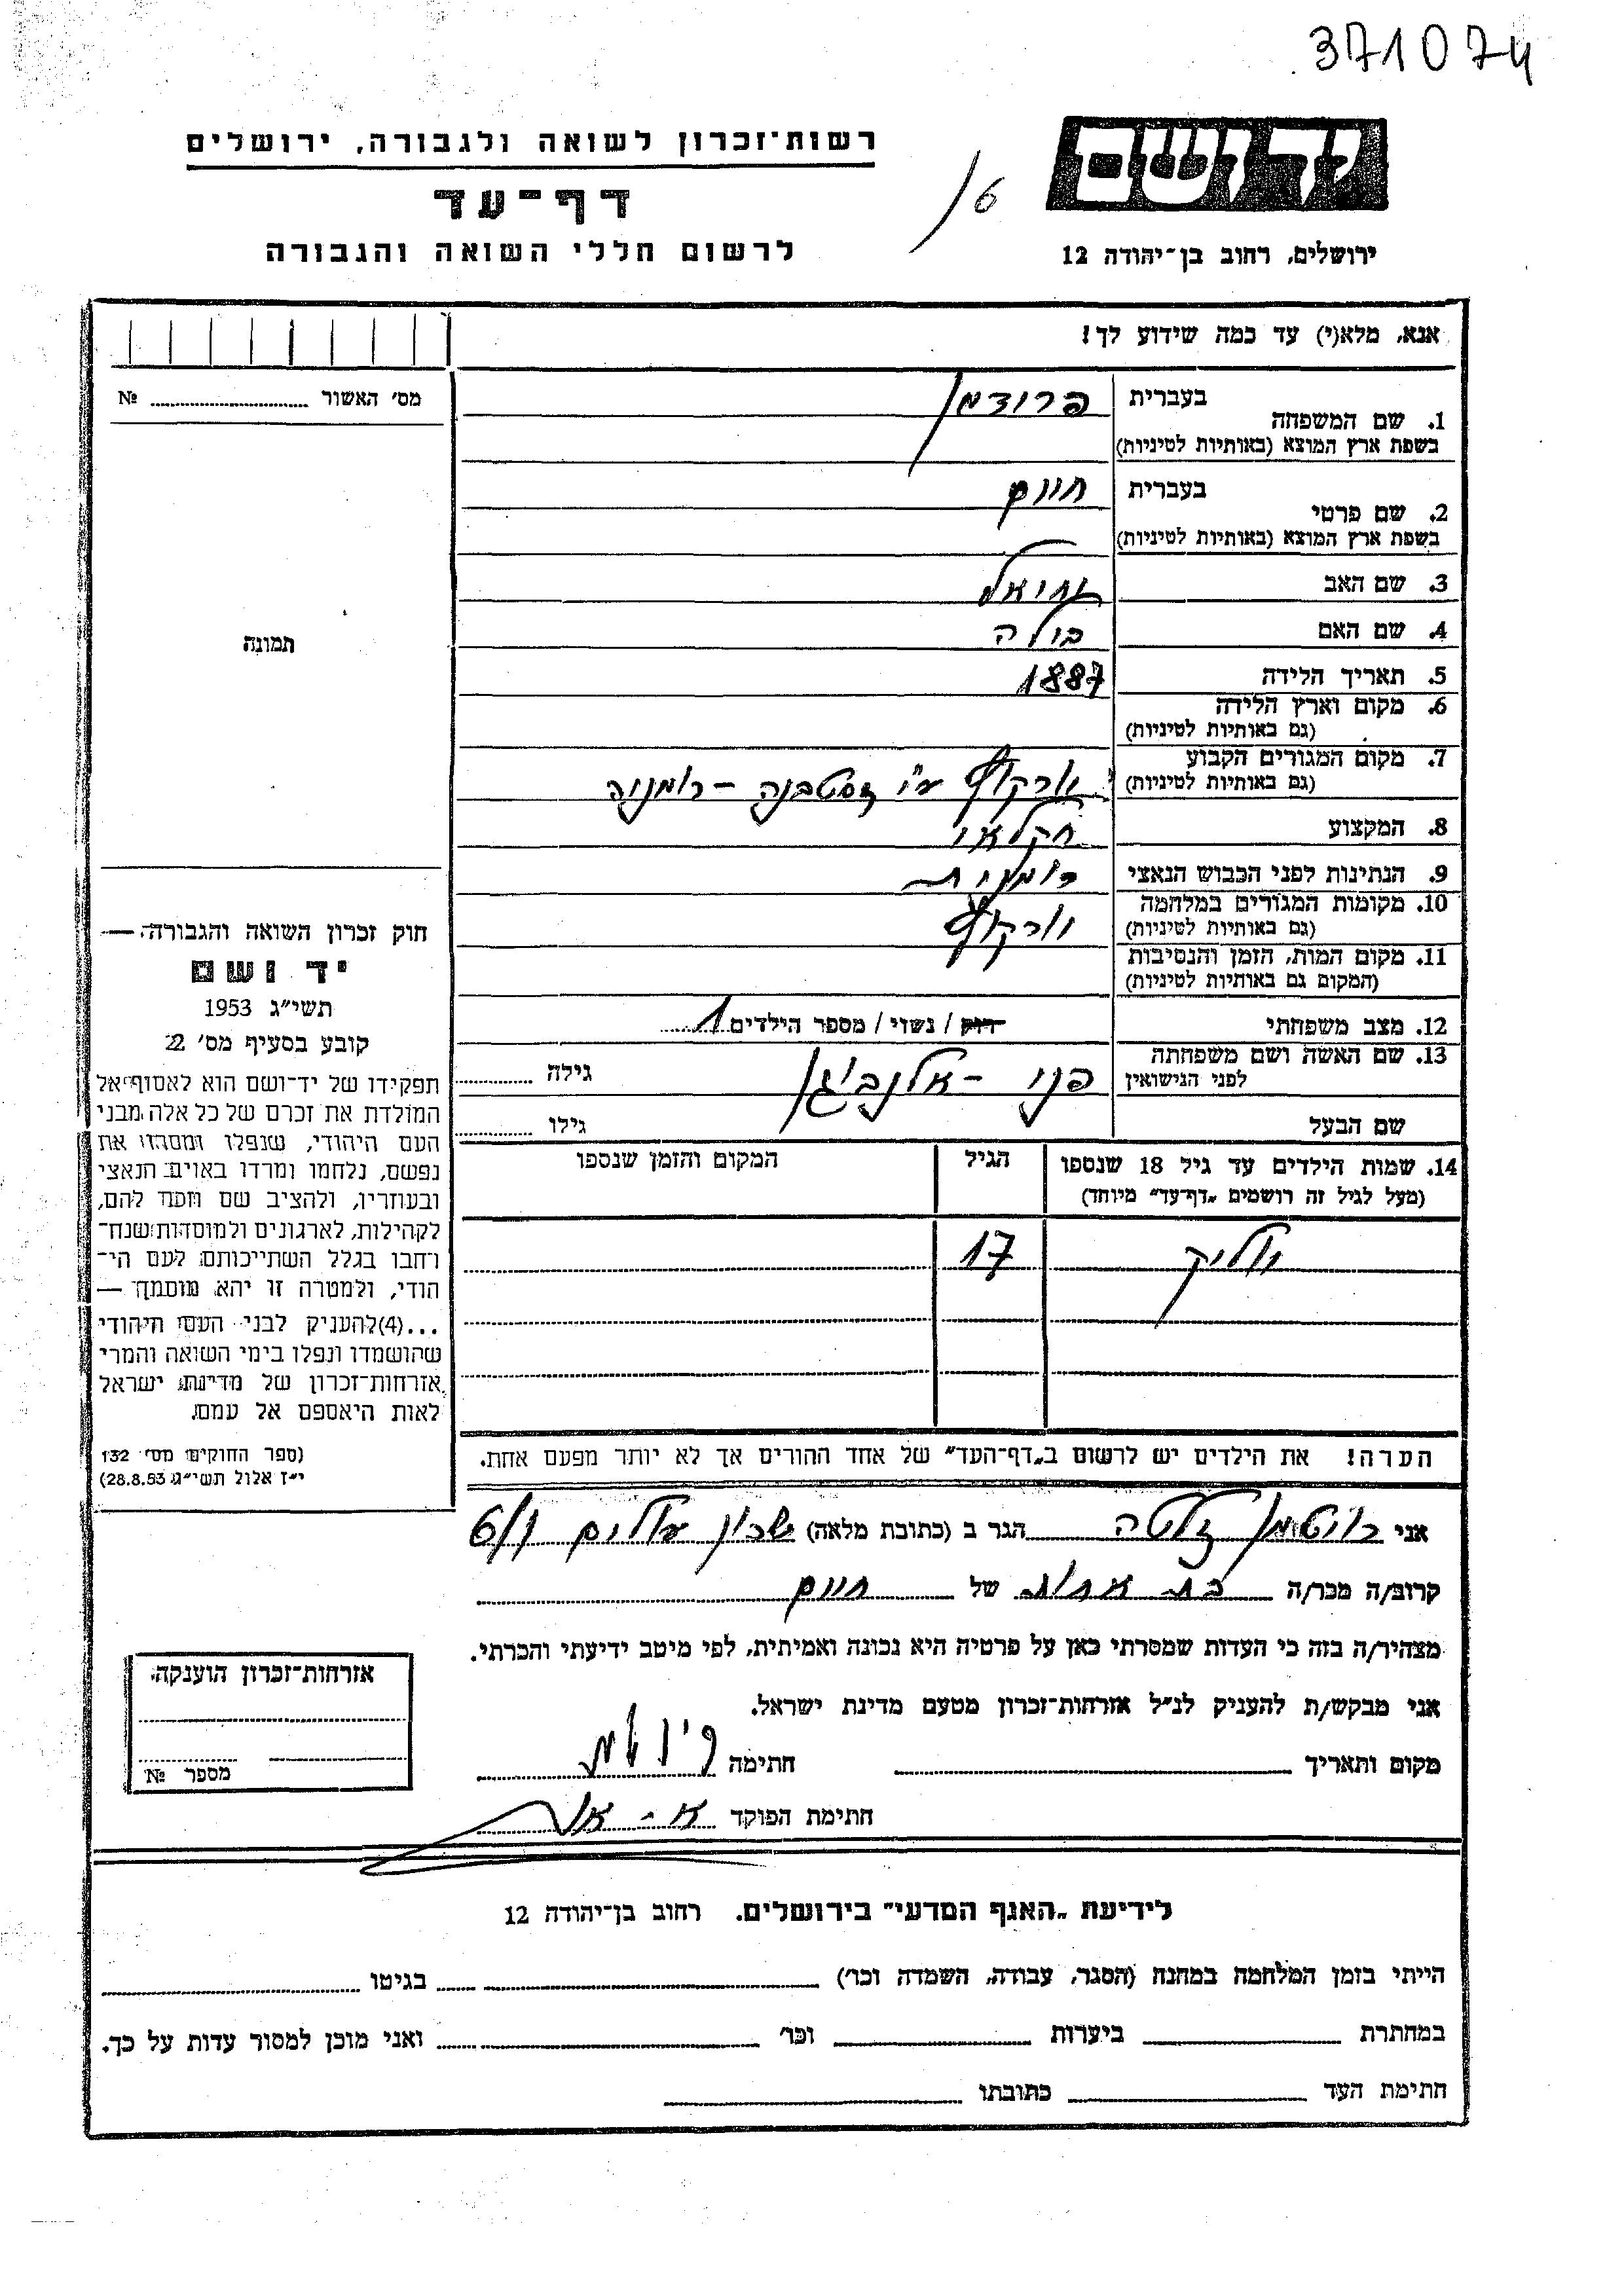 371074
יד ושם
ירושלים, רחוב בן־יהודה 12
16/
רשות־זכרון לשואה ולגבורה, ירושלים
דף־עד
לרשום חללי השואה והגבורה
אנא, מלא(י) עד כמה שידוע לך!
מס׳ האשור № 
תמונה
1. שם המשפחה בעברית פרודמן
בשפת ארץ המוצא (באותיות לטיניות)
2. שם פרטי בעברית חיים
בשפת ארץ המוצא (באותיות לטיניות)
3. שם האב
4. שם האם
5. תאריך הלידה 1887
6. מקום וארץ הלידה
(גם באותיות לטיניות)
7. מקום המגורים הקבוע ע״י רומניה
(גם באותיות לטיניות)
8. המקצוע חקלאי
9. הנתינות לפני הכבוש הנאצי רומנית
10. מקומות המגורים במלחמה
(גם באותיות לטיניות)
11. מקום המות, הזמן והנסיבות
(המקום גם באותיות לטיניות)
12. מצב משפחתי רווק / נשוי / מספר הילדים 1
13. שם האשה ושם משפחתה פני גילה
לפני הנישואין
שם הבעל גילו
14. שמות הילדים עד גיל 18 שנספו הגיל המקום והזמן שנספו
(מעל לגיל זה רושמים „דף־עד״ מיוחד)
17
הערה! את הילדים יש לרשום ב„דף־העד״ של אחד ההורים אך לא יותר מפעם אחת.
חוק זכרון השואה והגבורה —
יד ושם
תשי״ג 1953
קובע בסעיף מס׳ 2
תפקידו של יד־ושם הוא לאסוף אל
המולדת את זכרם של כל אלה מבני
העם היהודי, שנפלו ומסרו את
נפשם, נלחמו ומרדו באויב הנאצי
ובעוזריו, ולהציב שם וזכר להם,
לקהילות, לארגונים ולמוסדות שנח־
רחבו בגלל השתייכותם לעם הי־
הודי, ולמטרה זו יהא מוסמך —
...(4)להעניק לבני העם היהודי
שהושמדו ונפלו בימי השואה והמרי
אזרחות־זכרון של מדינת ישראל
לאות היאספם אל עמם.
(ספר החוקים מס׳ 132
י״ז אלול תשי״ג 28.8.53)
אני רויטמן זלטה הגר ב (כתובת מלאה) שכון עולים 6/ו
קרוב/ה מכר/ה בת אחות של חיים
מצהיר/ה בזה כי העדות שמסרתי כאן על פרטיה היא נכונה ואמיתית, לפי מיטב ידיעתי והכרתי.
אני מבקש/ת להעניק לנ״ל אזרחות־זכרון מטעם מדינת ישראל.
מקום ותאריך חתימה
חתימת הפוקד
אזרחות־זכרון הוענקה
מספר №
לידיעת „האגף המדעי״ בירושלים. רחוב בן־יהודה 12
הייתי בזמן המלחמה במחנה (הסגר, עבודה, השמדה וכו׳) בגיטו
במחתרת ביערות וכו׳ ואני מוכן למסור עדות על כך.
חתימת העד כתובתו